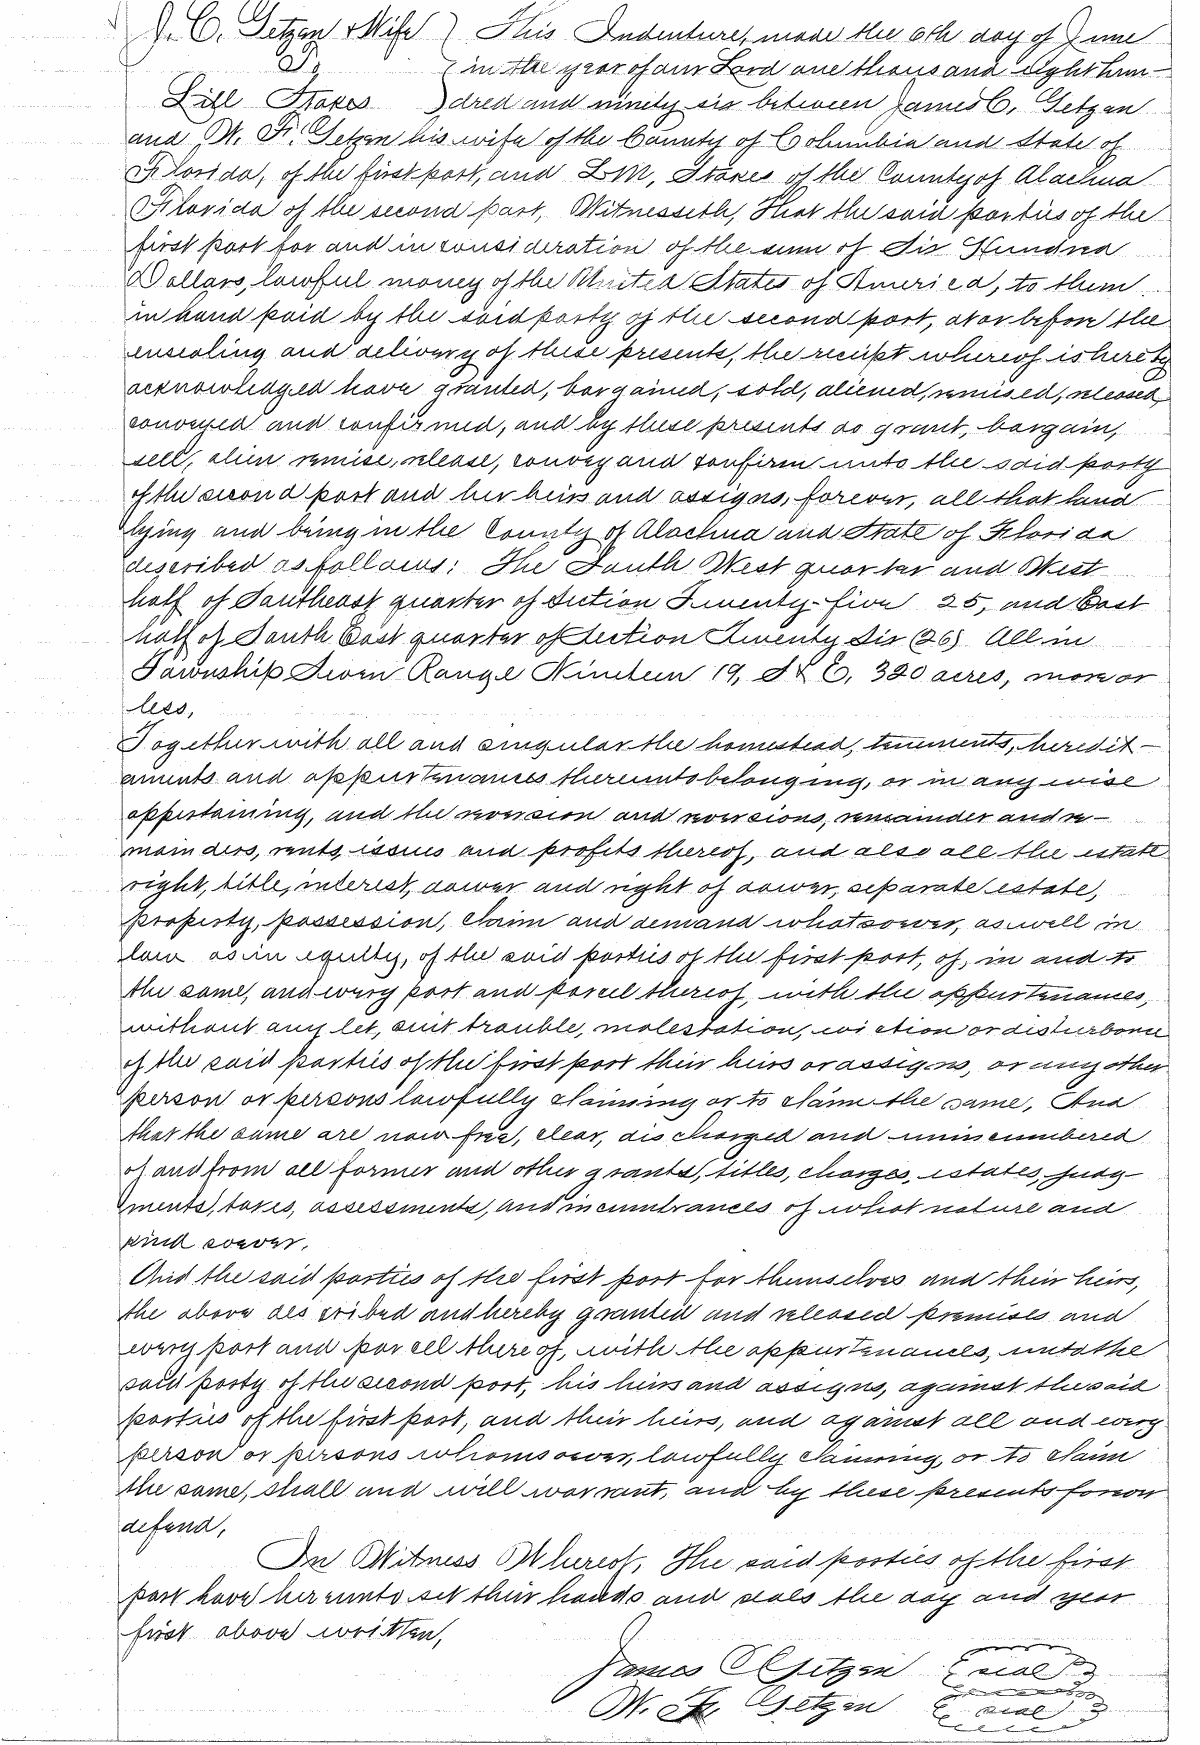 J. C. Getzen & Wife } This Indenture, made the 6th day of June
To { in the year of our Lord one thousand eight hun-
Lill Stakes } dred and ninety six between James C. Getzen
and W. F. Getzen his wife of the County of Columbia and State of
Florida, of the first part, and L. M. Stakes of the County of Alachua
Florida of the second part, Witnesseth, That the said parties of the
first part for and in consideration of the sum of Six Hundred
Dollars, lawful money of the United States of America, to them
in hand paid by the said party of the second part, at or before the
ensealing and delivery of these presents, the receipt whereof is hereby
acknowledged have granted, bargained, sold, aliened, remised, released,
conveyed and confirmed, and by these presents do grant, bargain,
sell, alien remise, release, convey and confirm unto the said party
of the second part and her heirs and assigns, forever, all that land
lying and being in the County of Alachua and State of Florida
described as follows: The South West quarter and West
half of Southeast quarter of Section Twenty-five 25, and East
half of South East quarter of Section Twenty Six (26) All in
Township Seven Range Nineteen 19, S & E, 320 acres, more or
less,
Together with all and singular the homestead, tenements, heredit-
aments and appurtenances thereunto belonging, or in any wise
appertaining, and the reversion and reversions, remainder and re-
mainders, rents, issues and profits thereof, and also all the estate
right, title, interest, dower and right of dower, separate estate,
property, possession, claim and demand whatsoever, as well in
law as in equity, of the said parties of the first part, of, in and to
the same, and every part and parcel thereof, with the appurtenances,
without any let, suit trouble, molestation, eviction or disturbance
of the said parties of the first part their heirs or assigns, or any other
person or persons lawfully claiming or to claim the same, And
that the same are now free, clear, discharged and unincumbered
of and from all former and other grants, titles, charges, estates, judg-
ments, taxes, assessments, and incumbrances of what nature and
kind soever.
And the said parties of the first part for themselves and their heirs,
the above described and hereby granted and released premises and
every part and parcell thereof, with the appurtenances, unto the
said party of the second part, his heirs and assigns, against the said
parties of the first part, and their heirs, and against all and every
person or persons whomsoever, lawfully claiming, or to claim
the same, shall and will warrant, and by these presents forever
defend,
In Witness Whereof, The said parties of the first
part have hereunto set their hands and seals the day and year
first above written,
James C Getzen {seal}
W. F. Getzen {seal}